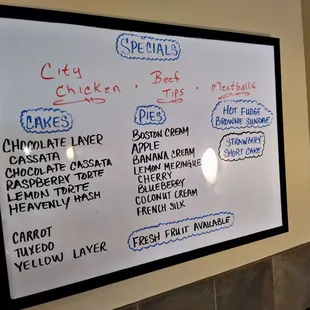 SPECIALS
City Chicken · Beef Tips · Meatballs
CAKES
CHOCOLATE LAYER
CASSATA
CHOCOLATE CASSATA
RASPBERRY TORTE
LEMON TORTE
HEAVENLY HASH
CARROT
TUXEDO
YELLOW LAYER
PIES
BOSTON CREAM
APPLE
BANANA CREAM
LEMON MERINGUE
CHERRY
BLUEBERRY
COCONUT CREAM
FRENCH SILK
FRESH FRUIT AVAILABLE
HOT FUDGE
BROWNIE SUNDAE
STRAWBERY
SHORT CAKE